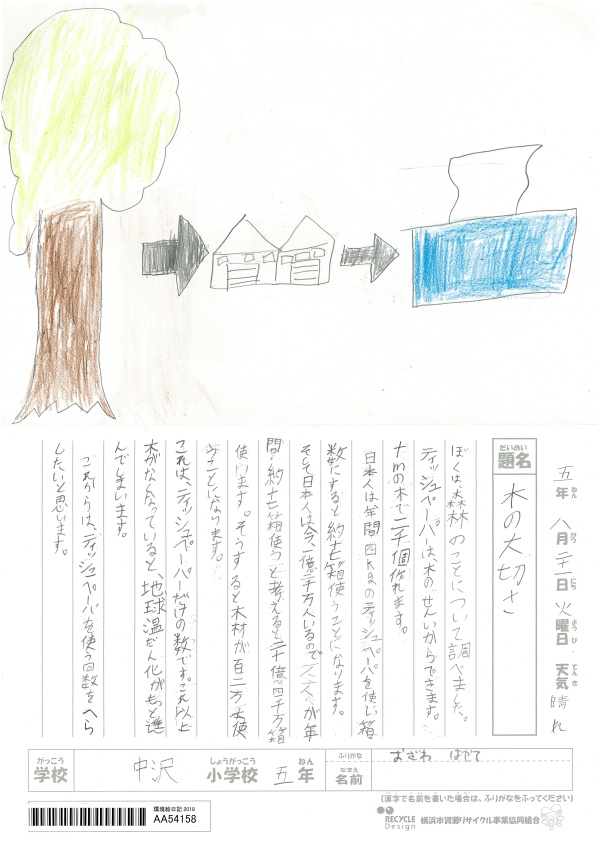 五年 八月 二十一日 火曜日 天気 晴れ
ねん がつ にち ようび てんき
だいめい
題名
木の大切さ
ぼくは、森林のことについて調べました。
ティッシュペーパーは、木のせんいからできます。
十mの木で二千個作れます。
日本人は年間四kgのティッシュペーパーを使い、箱
数にすると約十七箱使うことになります。
そして日本人は今一億二千万人いるので が年
間、約十七箱使うと考えると二十億四千万箱
使います。そうすると木材が百二万 使
うことになります。
これは、ティッシュペーパーだけの数です。これ以上
木がなくなっていると、地球温だん化がもっと進
んでしまいます。
これからは、ティッシュペーパーを使う回数をへら
したいと思います。
がっこう
学校
中沢
しょうがっこう
小学校
五
ねん
年
ふりがな
おざわ はやて
なまえ
名前
(漢字で名前を書いた場合は、ふりがなをふってください)
環境絵日記 2018
AA54158
RECYCLE Design
横浜市資源リサイクル事業協同組合